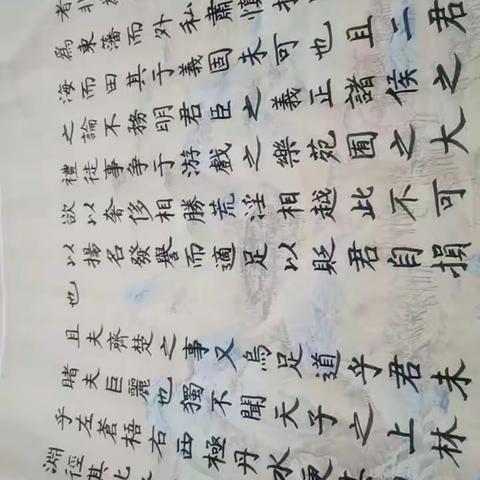 者非
為東藩而外私肅慎
海而田其于義固未可也且二君
之論不務明君臣之義正諸侯之
禮徒事爭于游戲之樂苑囿之大
欲以奢侈相勝荒淫相越此不可
以揚名發譽而適足以貶君自損
也
且夫齊楚之事又烏足道乎君未
睹夫巨麗也獨不聞天子之上林
乎左蒼梧右西極丹水更其
淵徑其北